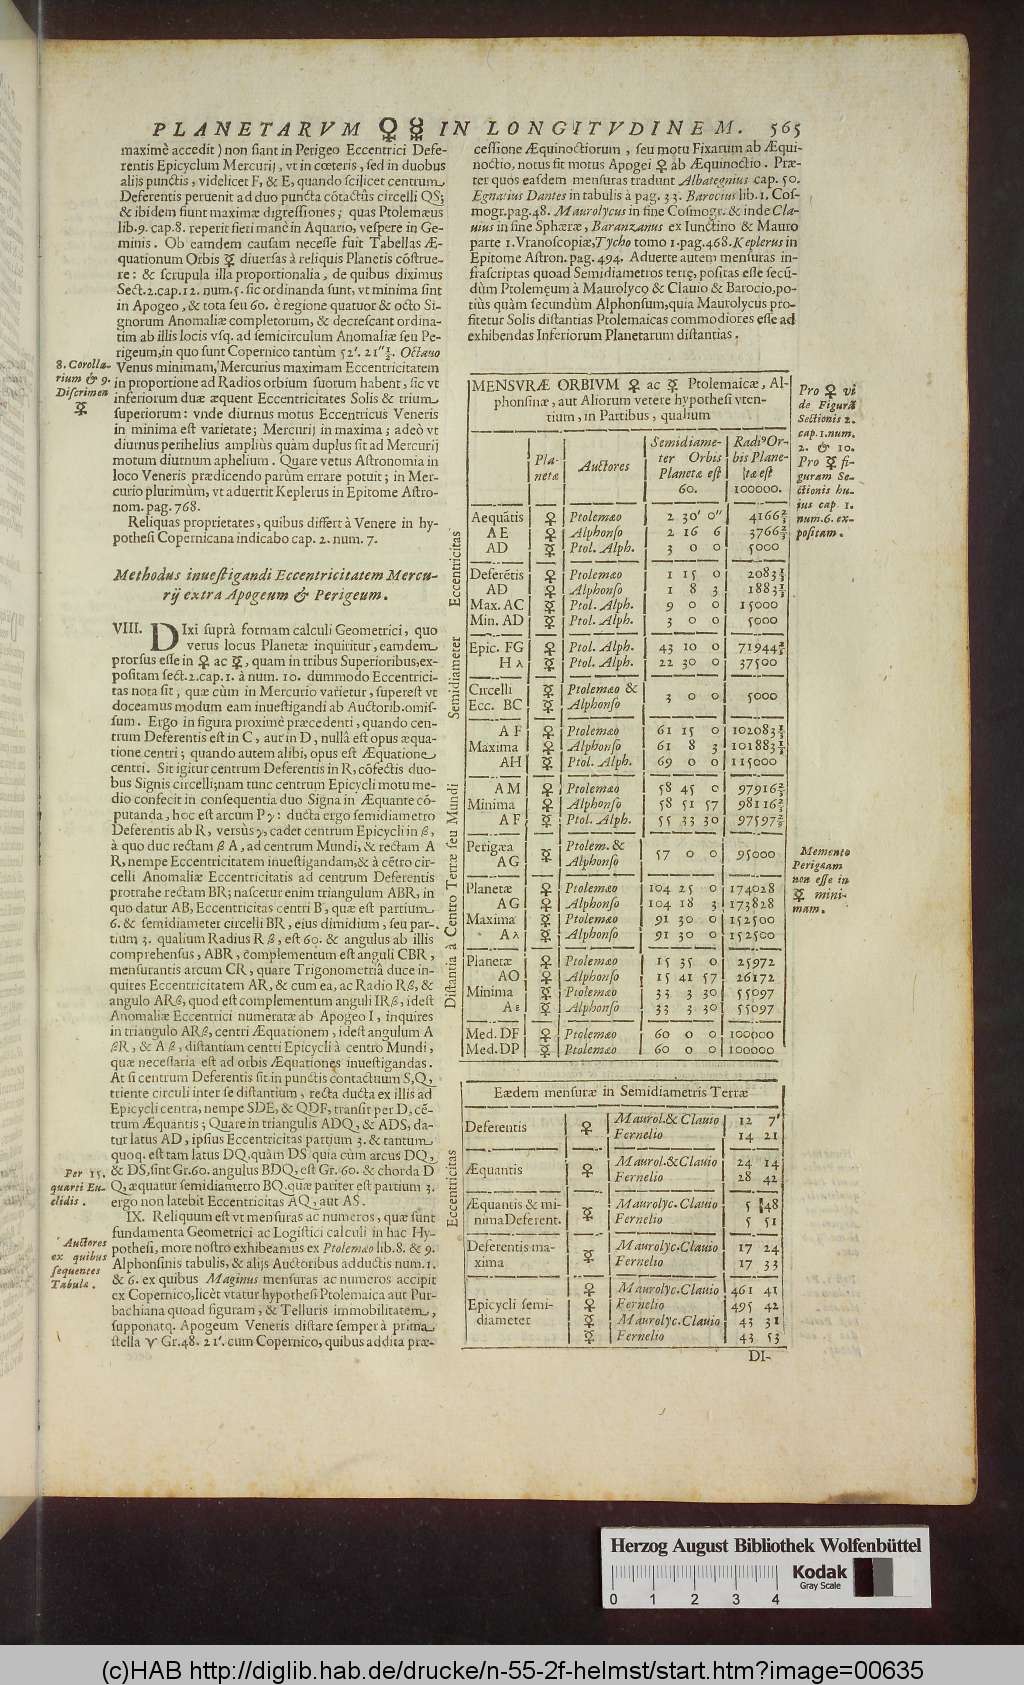 PLANETARVM ♀ ☿ IN LONGITVDINEM. 565
maximè accedit) non fiant in Perigeo Eccentrici Defe-
rentis Epicyclum Mercurij, vt in cœteris, sed in duobus
alijs punctis, videlicet F, & E, quando scilicet centrum
Deferentis peruenit ad duo puncta cōtactûs circelli QS;
& ibidem fiunt maximæ digressiones; quas Ptolemæus
lib.9. cap.8. reperit fieri manè in Aquario, vespere in Ge-
minis. Ob eamdem causam necesse fuit Tabellas Æ-
quationum Orbis ☿ diuersas à reliquis Planetis cōstrue-
re: & scrupula illa proportionalia, de quibus diximus
Sect.2.cap.12. num.5. sic ordinanda sunt, vt minima sint
in Apogeo, & tota seu 60. è regione quatuor & octo Si-
gnorum Anomaliæ completorum, & decrescant ordina-
tim ab illis locis vsq. ad semicirculum Anomaliæ seu Pe-
rigeum, in quo sunt Copernico tantùm 52'. 21''½. Octauo
8. Corolla-
rium & 9.
Discrimen
☿
Venus minimam, Mercurius maximam Eccentricitatem
in proportione ad Radios orbium suorum habent, sic vt
inferiorum duæ æquent Eccentricitates Solis & trium
superiorum: vnde diurnus motus Eccentricus Veneris
in minima est varietate; Mercurij in maxima; adeò vt
diurnus perihelius ampliùs quàm duplus sit ad Mercurij
motum diurnum aphelium. Quare vetus Astronomia in
loco Veneris prædicendo parùm errare potuit; in Mer-
curio plurimùm, vt aduertit Keplerus in Epitome Astro-
nom. pag. 768.
Reliquas proprietates, quibus differt à Venere in hy-
pothesi Copernicana indicabo cap. 2. num. 7.
Methodus inuestigandi Eccentricitatem Mercu-
rij extra Apogeum & Perigeum.
VIII. DIxi suprà formam calculi Geometrici, quo
verus locus Planetæ inquiritur, eamdem
prorsus esse in ♀ ac ☿, quam in tribus Superioribus, ex-
positam sect.2.cap.1. à num. 10. dummodo Eccentrici-
tas nota sit, quæ cùm in Mercurio varietur, superest vt
doceamus modum eam inuestigandi ab Auctorib. omis-
sum. Ergo in figura proximè præcedenti, quando cen-
trum Deferentis est in C, aut in D, nullâ est opus æqua-
tione centri; quando autem alibi, opus est Æquatione
centri. Sit igitur centrum Deferentis in R, cōfectis duo-
bus Signis circelli; nam tunc centrum Epicycli motu me-
dio confecit in consequentia duo Signa in Æquante cō-
putanda, hoc est arcum Pγ: ducta ergo semidiametro
Deferentis ab R, versùs γ, cadet centrum Epicycli in β,
à quo duc rectam β A, ad centrum Mundi, & rectam A
R, nempe Eccentricitatem inuestigandam, & à cētro cir-
celli Anomaliæ Eccentricitatis ad centrum Deferentis
protrahe rectam BR; nascetur enim triangulum ABR, in
quo datur AB, Eccentricitas centri B, quæ est partium
6. & semidiameter circelli BR, eius dimidium, seu par-
tium 3. qualium Radius R β, est 60. & angulus ab illis
comprehensus, ABR, complementum est anguli CBR,
mensurantis arcum CR, quare Trigonometriâ duce in-
quires Eccentricitatem AR, & cum ea, ac Radio Rβ, &
angulo ARβ, quod est complementum anguli IRβ, idest
Anomaliæ Eccentrici numeratæ ab Apogeo I, inquires
in triangulo ARβ, centri Æquationem, idest angulum A
βR, & A β, distantiam centri Epicycli à centro Mundi,
quæ necessaria est ad orbis Æquationes inuestigandas.
At si centrum Deferentis sit in punctis contactuum S,Q,
triente circuli inter se distantium, recta ducta ex illis ad
Epicycli centra, nempe SDE, & QDF, transit per D, cē-
trum Æquantis; Quare in triangulis ADQ, & ADS, da-
tur latus AD, ipsius Eccentricitas partium 3. & tantum
quoq. est tam latus DQ, quàm DS quia cùm arcus DQ,
Per 15.
quarti Eu-
clidis.
& DS, sint Gr.60. angulus BDQ, est Gr. 60. & chorda D
Q, æquatur semidiametro BQ. quæ pariter est partium 3.
ergo non latebit Eccentricitas AQ, aut AS.
IX. Reliquum est vt mensuras ac numeros, quæ sunt
fundamenta Geometrici ac Logistici calculi in hac Hy-
Auctores
ex quibus
sequentes
Tabulæ.
pothesi, more nostro exhibeamus ex Ptolemæo lib.8. & 9.
Alphonsinis tabulis, & alijs Auctoribus adductis num.1.
& 6. ex quibus Maginus mensuras ac numeros accipit
ex Copernico, licèt vtatur hypothesi Ptolemaica aut Pur-
bachiana quoad figuram, & Telluris immobilitatem,
supponatq. Apogeum Veneris distare semper à prima
stella ♈ Gr.48. 21'. cum Copernico, quibus addita præ-
cessione Æquinoctiorum, seu motu Fixarum ab Æqui-
noctio, notus fit motus Apogei ♀ ab Æquinoctio. Præ-
ter quos easdem mensuras tradunt Albategnius cap. 50.
Egnatius Dantes in tabulis à pag. 33. Barocius lib.1. Cos-
mogr.pag.48. Maurolycus in fine Cosmogr. & inde Cla-
uius in fine Sphæræ, Baranzanus ex Iunctino & Mauro
parte 1. Vranoscopiæ, Tycho tomo 1.pag.468. Keplerus in
Epitome Astron. pag. 494. Aduerte autem mensuras in-
frascriptas quoad Semidiametros terrę, positas esse secū-
dùm Ptolemęum à Maurolyco & Clauio & Barocio, po-
tiùs quàm secundùm Alphonsum, quia Maurolycus pro-
fitetur Solis distantias Ptolemaicas commodiores esse ad
exhibendas Inferiorum Planetarum distantias.
MENSVRÆ ORBIVM ♀ ac ☿ Ptolemaicæ, Al-
phonsinæ, aut Aliorum vetere hypothesi vten-
tium, in Partibus, qualium
Pro ♀ vi
de Figurā
Sectionis 2.
cap. 1. num.
2. & 10.
Pro ☿ fi-
guram Se-
ctionis hu-
ius cap 1.
num.6. ex-
positam.
Planetæ Auctores Semidiameter Orbis Planetæ est 60. Radiꝰ Orbis Planetæ est 100000.
Eccentricitas
Aequātis ♀ Ptolemæo 2 30' 0'' 4166⅔
A E ♀ Alphonso 2 16 6 3766⅔
AD ☿ Ptol. Alph. 3 0 0 5000
Deferētis ♀ Ptolemæo 1 15 0 2083⅓
AD ♀ Alphonso 1 8 3 1883⅓
Max. AC ☿ Ptol. Alph. 9 0 0 15000
Min. AD ☿ Ptol. Alph. 3 0 0 5000
Semidiameter
Epic. FG ♀ Ptol. Alph. 43 10 0 71944⅔
H λ ☿ Ptol. Alph. 22 30 0 37500
Circelli ☿ Ptolemæo &
Ecc. BC ☿ Alphonso 3 0 0 5000
Distantia à Centro Terræ seu Mundi
A F ♀ Ptolemæo 61 15 0 102083⅓
Maxima ♀ Alphonso 61 8 3 101883⅓
AH ☿ Ptol. Alph. 69 0 0 115000
A M ♀ Ptolemæo 58 45 0 97916⅔
Minima ♀ Alphonso 58 51 57 98116⅔
A F ☿ Ptol. Alph. 55 33 30 97597⅔
Perigæa ☿ Ptolem. &
A G Alphonso 57 0 0 95000
Memento
Perigæam
non esse in
☿ mini-
mam.
Planetæ ♀ Ptolemæo 104 25 0 174028
A G ♀ Alphonso 104 18 3 173828
Maxima ☿ Ptolemæo 91 30 0 152500
A λ ☿ Alphonso 91 30 0 152500
Planetæ ♀ Ptolemæo 15 35 0 25972
AO ♀ Alphonso 15 41 57 26172
Minima ☿ Ptolemæo 33 3 30 55097
A ε ☿ Alphonso 33 3 30 55097
Med. DF ♀ Ptolemæo 60 0 0 100000
Med. DP ☿ Ptolemæo 60 0 0 100000
Eædem mensuræ in Semidiametris Terræ
Eccentricitas
Deferentis ♀ Maurol.& Clauio 12 7'
Fernelio 14 21
Æquantis ♀ Maurol.&Clauio 24 14
Fernelio 28 42
Æquantis & mi- ☿ Maurolyc. Clauio 5 48
nima Deferent. Fernelio 5 51
Deferentis ma- ☿ Maurolyc.Clauio 17 24
xima Fernelio 17 33
♀ Maurolyc.Clauio 461 41
Epicycli semi- ♀ Fernelio 495 42
diameter ☿ Maurolyc.Clauio 43 31
☿ Fernelio 43 53
DI-
Herzog August Bibliothek Wolfenbüttel
Kodak
Gray Scale
0 1 2 3 4
(c)HAB http://diglib.hab.de/drucke/n-55-2f-helmst/start.htm?image=00635